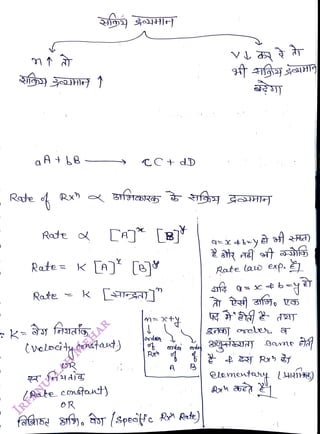 सक्रिय द्रव्यमान
n↑ तो
सक्रिय द्रव्यमान ↑
V↓ कर दे तो
भी सक्रिय द्रव्यमान
बढ़ेगा
aA + bB ⟶ cC + dD
Rate of Rxⁿ ∝ अभिकारक के सक्रिय द्रव्यमान
Rate ∝ [A]ˣ [B]ʸ
Rate = K [A]ˣ [B]ʸ
Rate = K [सान्द्रता]ⁿ
n = x+y
order of Rxⁿ
order of A
order of B
∴ K = वेग नियतांक
(Velocity constant)
OR
दर नियतांक
(Rate constant)
OR
विशिष्ट अभि. वेग (Specific Rxⁿ Rate)
a=x व b=y हो भी सकता
है और नहीं भी क्योंकि
Rate law exp. है।
यदि a=x व b=y हो
तो ऐसी अभि. एक
पद में होती है तथा
इनका order व
अणुसंख्यता same होती
है व इस Rxⁿ को
elementary (प्राथमिक)
Rxⁿ कहते है।